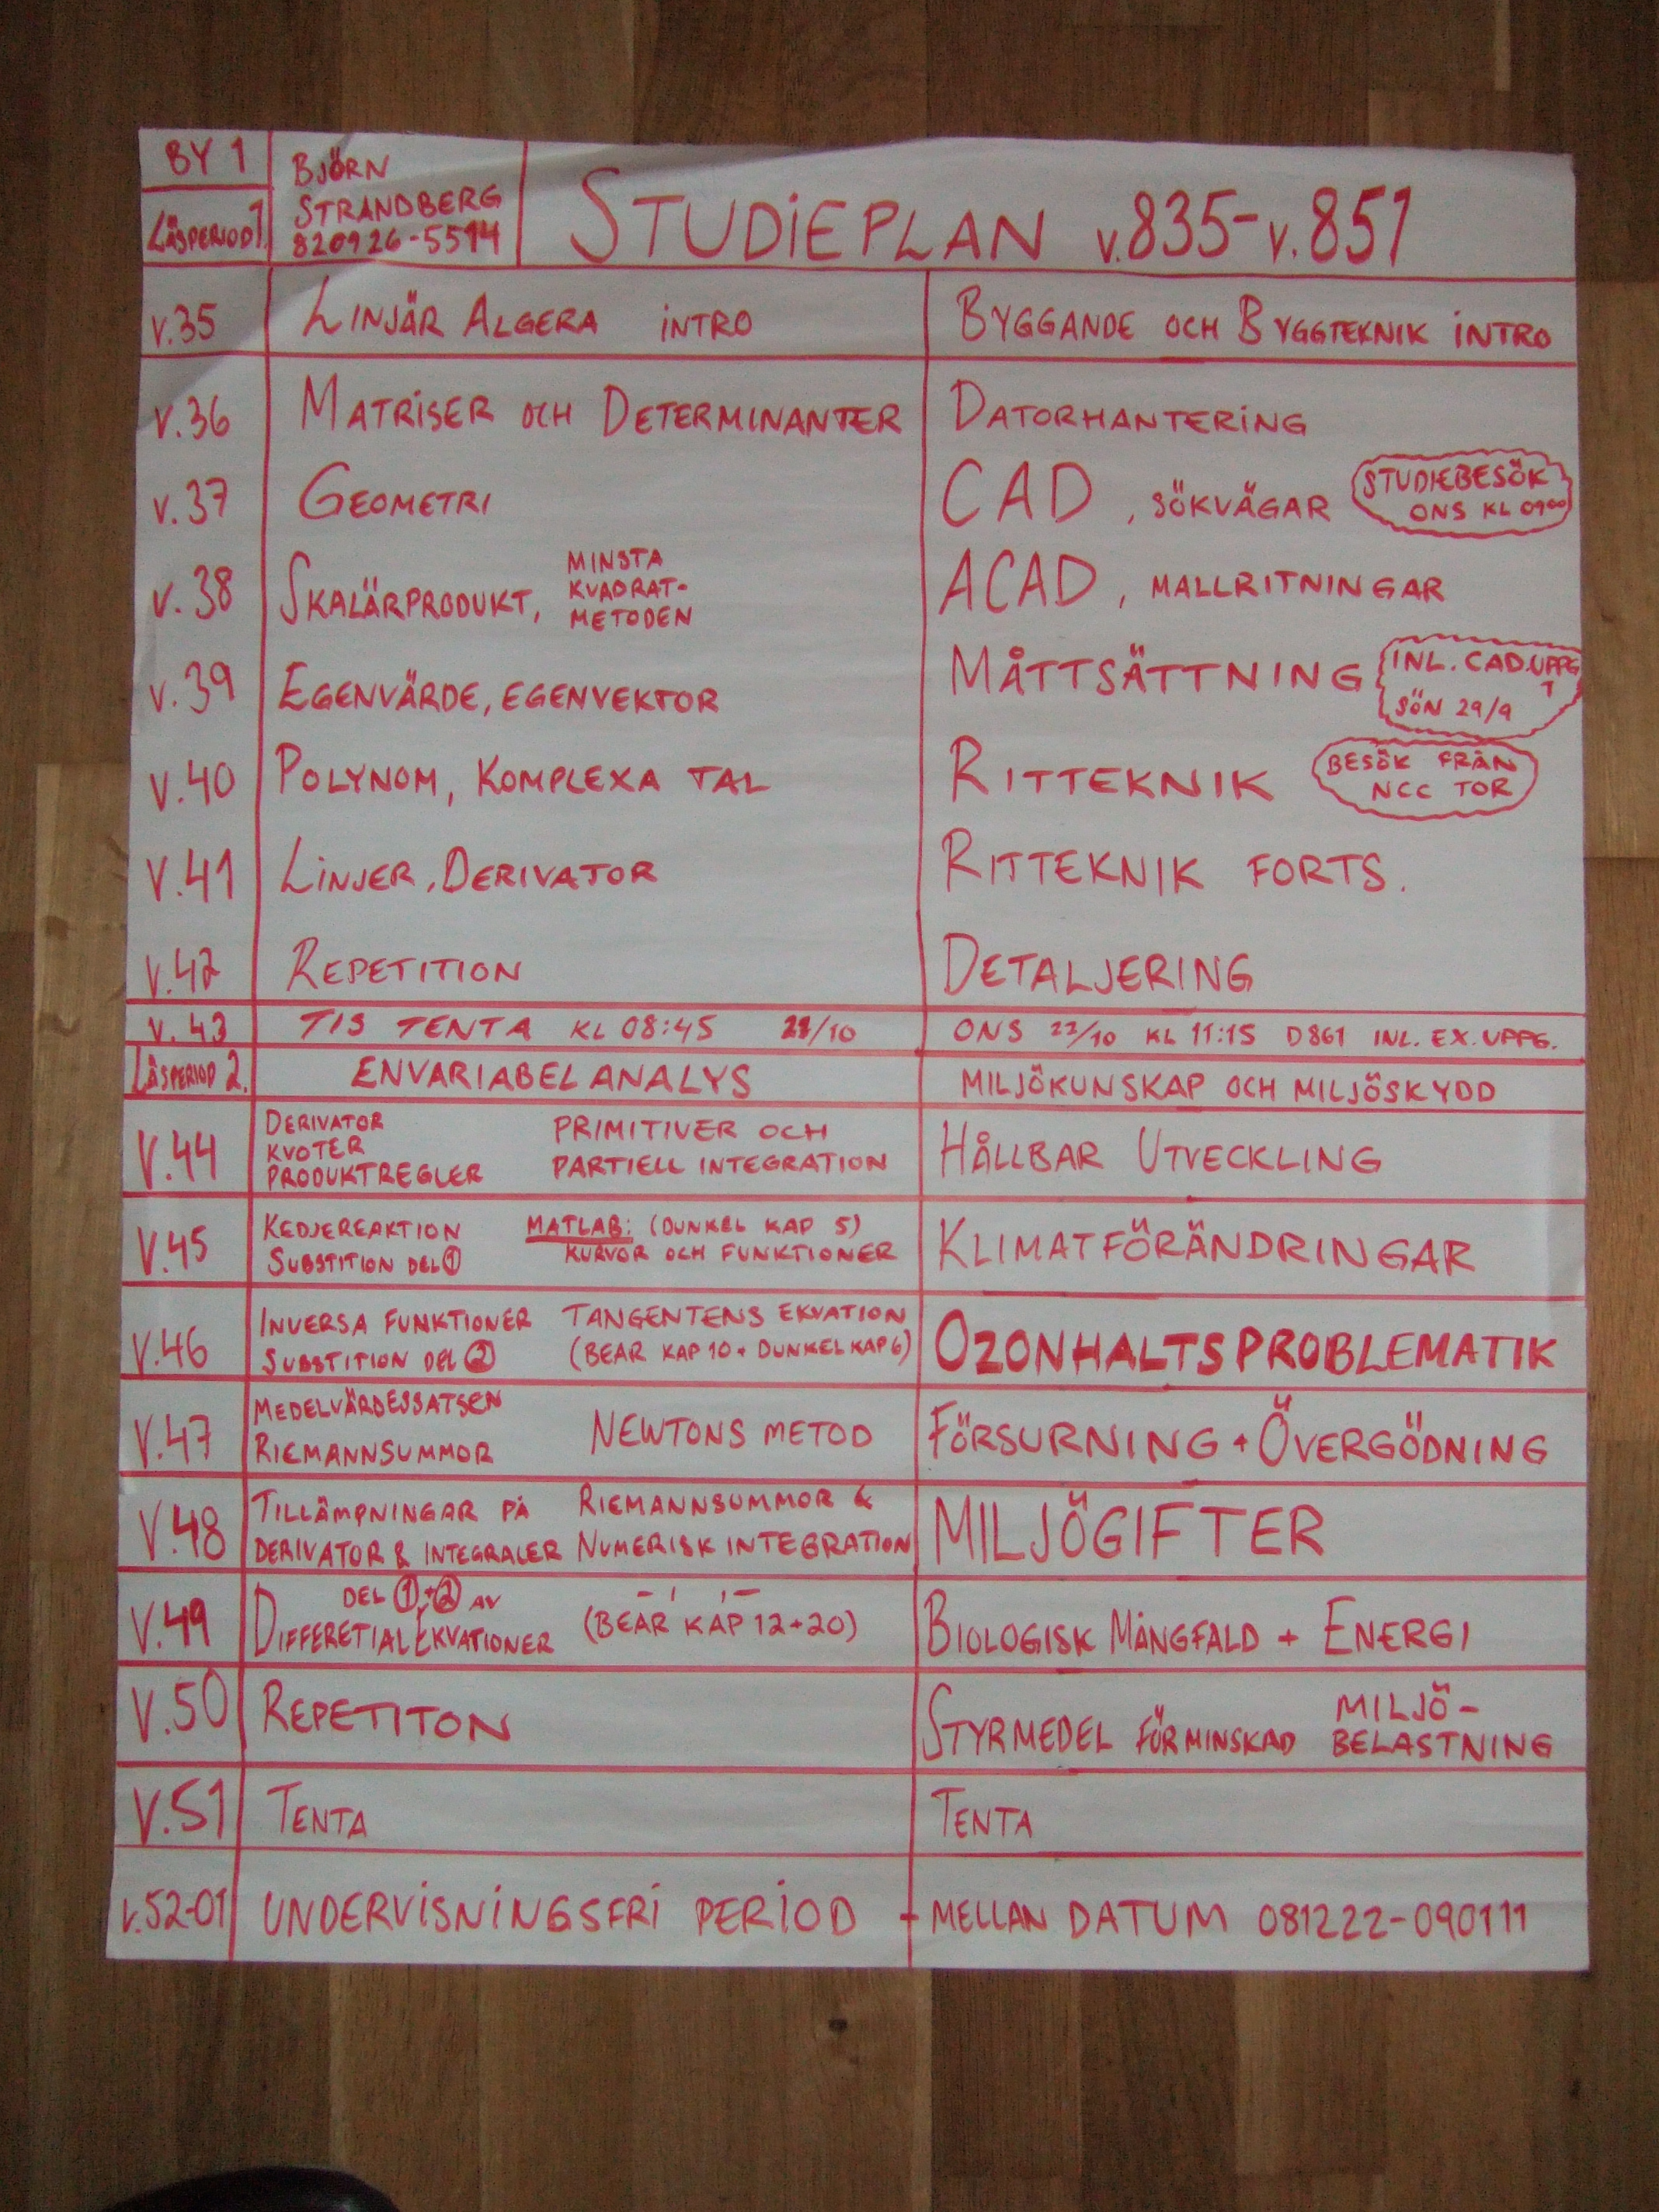 BY 1
LÄSPERIOD 1.
BJÖRN
STRANDBERG
820926-5514
STUDIEPLAN v.835-v.851
v.35 LINJÄR ALGERA INTRO BYGGANDE OCH BYGGTEKNIK INTRO
v.36 MATRISER OCH DETERMINANTER DATORHANTERING
v.37 GEOMETRI CAD, SÖKVÄGAR
STUDIEBESÖK
ONS KL 0900
v.38 SKALÄRPRODUKT, MINSTA
KVADRAT-
METODEN
ACAD, MALLRITNINGAR
v.39 EGENVÄRDE, EGENVEKTOR MÅTTSÄTTNING
INL. CAD.UPPG
1
SÖN 29/9
V.40 POLYNOM, KOMPLEXA TAL RITTEKNIK
BESÖK FRÅN
NCC TOR
V.41 LINJER, DERIVATOR RITTEKNIK FORTS.
V.42 REPETITION DETALJERING
V.43 TIS TENTA KL 08:45 21/10 ONS 22/10 KL 11:15 D861 INL. EX. UPPG.
LÄSPERIOD 2. ENVARIABELANALYS MILJÖKUNSKAP OCH MILJÖSKYDD
V.44 DERIVATOR
KVOTER
PRODUKTREGLER
PRIMITIVER OCH
PARTIELL INTEGRATION
HÅLLBAR UTVECKLING
V.45 KEDJEREAKTION
SUBSTITION DEL 1
MATLAB: (DUNKEL KAP 5)
KURVOR OCH FUNKTIONER
KLIMATFÖRÄNDRINGAR
V.46 INVERSA FUNKTIONER
SUBSTITION DEL 2
TANGENTENS EKVATION
(BEAR KAP 10 + DUNKEL KAP 6)
OZONHALTSPROBLEMATIK
V.47 MEDELVÄRDESSATSEN
RIEMANNSUMMOR
NEWTONS METOD
FÖRSURNING + ÖVERGÖDNING
V.48 TILLÄMPNINGAR PÅ
DERIVATOR & INTEGRALER
RIEMANNSUMMOR &
NUMERISK INTEGRATION
MILJÖGIFTER
V.49 DEL 1+2 AV
DIFFERETIALEKVATIONER
-" "-
(BEAR KAP 12+20)
BIOLOGISK MÅNGFALD + ENERGI
V.50 REPETITON STYRMEDEL FÖR MINSKAD MILJÖ-
BELASTNING
V.51 TENTA TENTA
v.52-01 UNDERVISNINGSFRI PERIOD - MELLAN DATUM 081222-090111